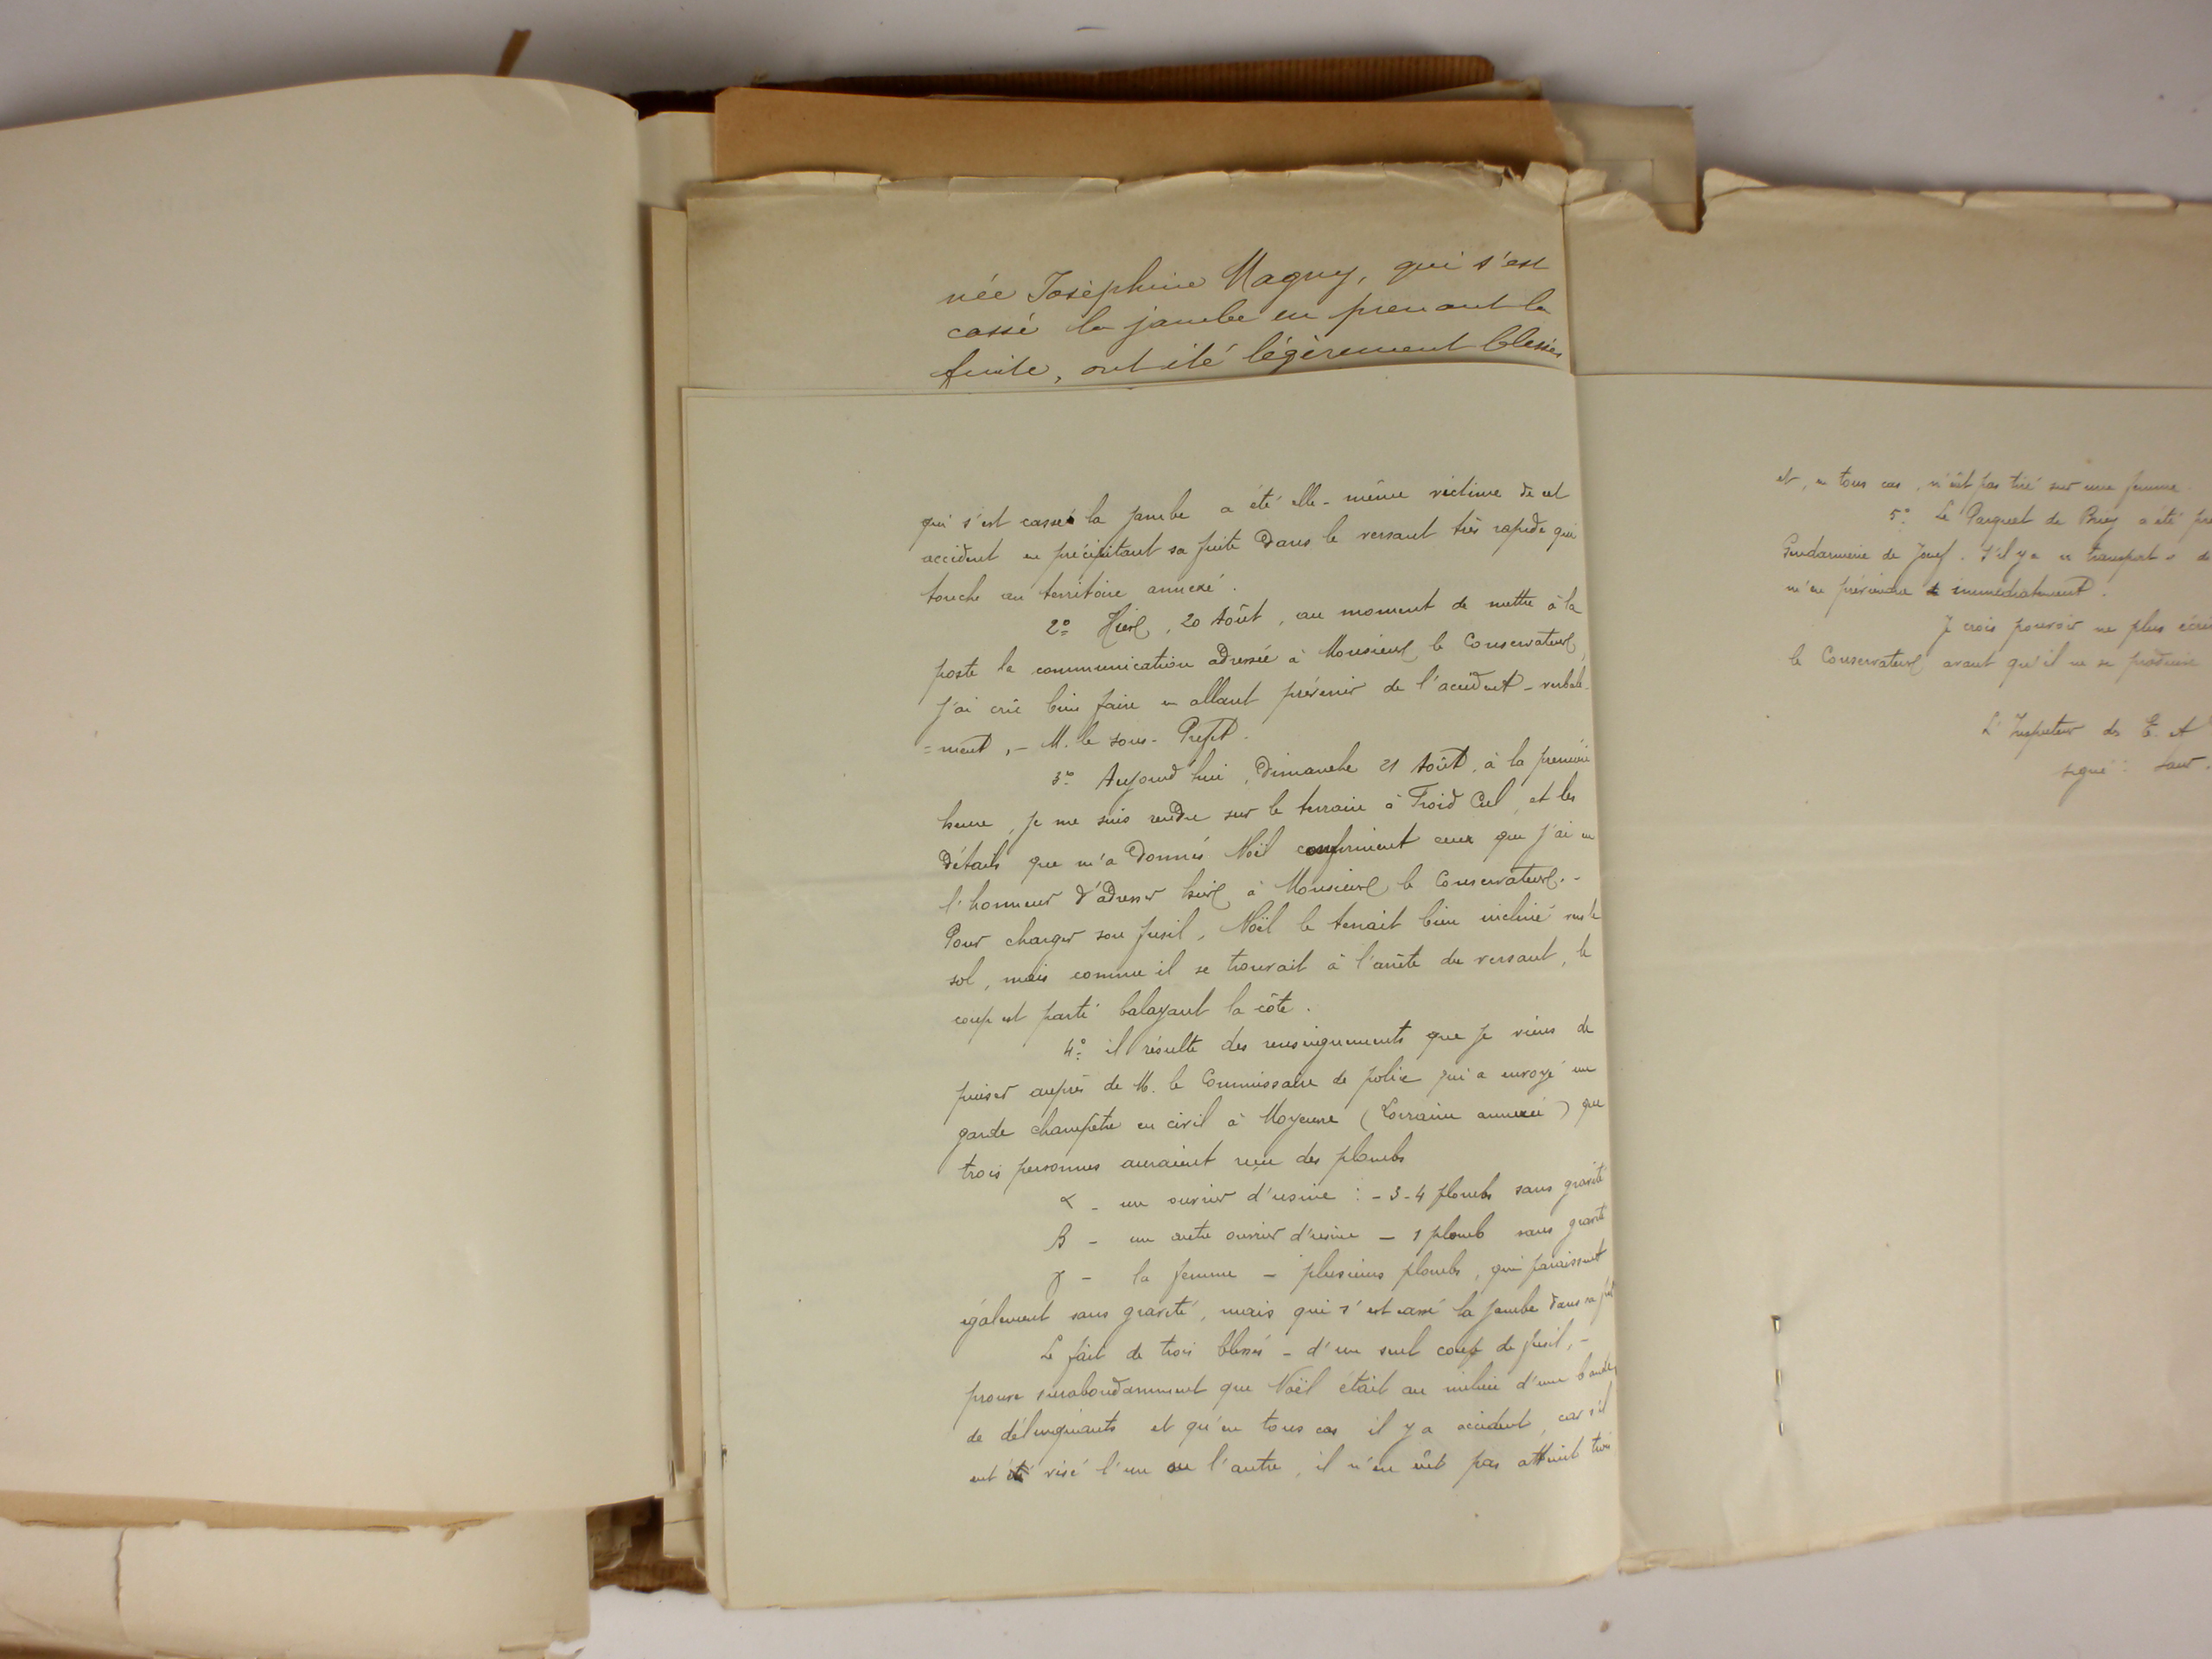 née Josèphine Magny, qui s'est
cassé la jambe en prenant la
fuite, ont été légèrement blessés
qui s'est cassé la jambe a été elle-même victime de cet
accident en précipitant sa fuite dans le versant très rapide qui
touche au territoire annexé.
2° Hier, 20 Août, au moment de mettre à la
poste la communication adressée à Monsieur le Conservateur,
j'ai crû bien faire en allant prévenir de l'accident - verbale-
=ment, - M. le Sous-Préfet.
3° Aujourd'hui, Dimanche 21 Août, à la première
heure, je me suis rendu sur le terrain à Froid Cul, et les
détails que m'a donnés Noël confirment ceux que j'ai eu
l'honneur d'adresser hier à Monsieur le Conservateur. -
Pour charger son fusil, Noël le tenait bien incliné vers le
sol, mais comme il se trouvait à l'arête du versant, le
coup est parti balayant la côte.
4° il résulte des renseignements que je viens de
puiser auprès de M. le Commissaire de police qui a envoyé un
garde champêtre en civil à Moyeuvre (Lorraine annexée) que
trois personnes auraient reçu des plombs
α - un ouvrier d'usine : - 3-4 plombs sans gravité
β - un autre ouvrier d'usine - 1 plomb sans gravité
γ - la femme - plusieurs plombs, qui paraissent
également sans gravité, mais qui s'est cassé la jambe dans sa
Le fait de trois blessés - d'un seul coup de fusil, -
prouve surabondamment que Noël était au milieu d'une bande
de délinquants et qu'en tous cas il y a accident, car s'il
eut visé l'un ou l'autre, il n'en eût pas atteint trois
et, en tous cas, n'eût pas tiré sur une femme.
5° Le Parquet de Briey a été
Gendarmerie de Joeuf. S'il y a un transport
m'en prévenir immédiatement.
Je crois pouvoir ne plus
le Conservateur avant qu'il ne se produise
L'Inspecteur des E. et
signé :